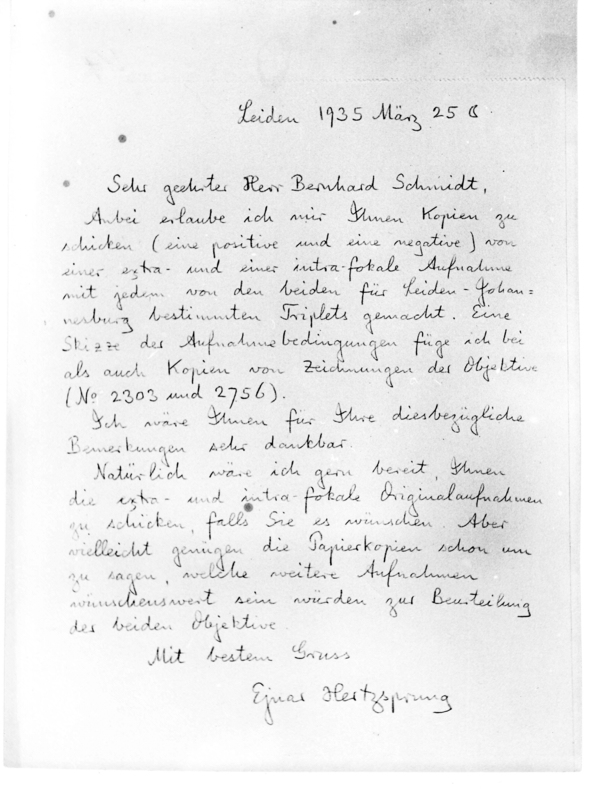 Leiden 1935 März 25
Sehr geehrter Herr Bernhard Schmidt,
Anbei erlaube ich mir Ihnen Kopien zu
schicken (eine positive und eine negative) von
einer extra- und einer intra-fokale Aufnahme
mit jedem von den beiden für Leiden-Johan=
nesburg bestimmten Triplets gemacht. Eine
Skizze der Aufnahmebedingungen füge ich bei
als auch Kopien von Zeichnungen der Objektive
(No 2303 und 2756).
Ich wäre Ihnen für Ihre diesbezügliche
Bemerkungen sehr dankbar.
Natürlich wäre ich gern bereit, Ihnen
die extra- und intra-fokale Originalaufnahmen
zu schicken, falls Sie es wünschen. Aber
vielleicht genügen die Papierkopien schon um
zu sagen, welche weitere Aufnahmen
wünschenswert sein würden zur Beurteilung
der beiden Objektive.
Mit bestem Gruss
Ejnar Hertzsprung